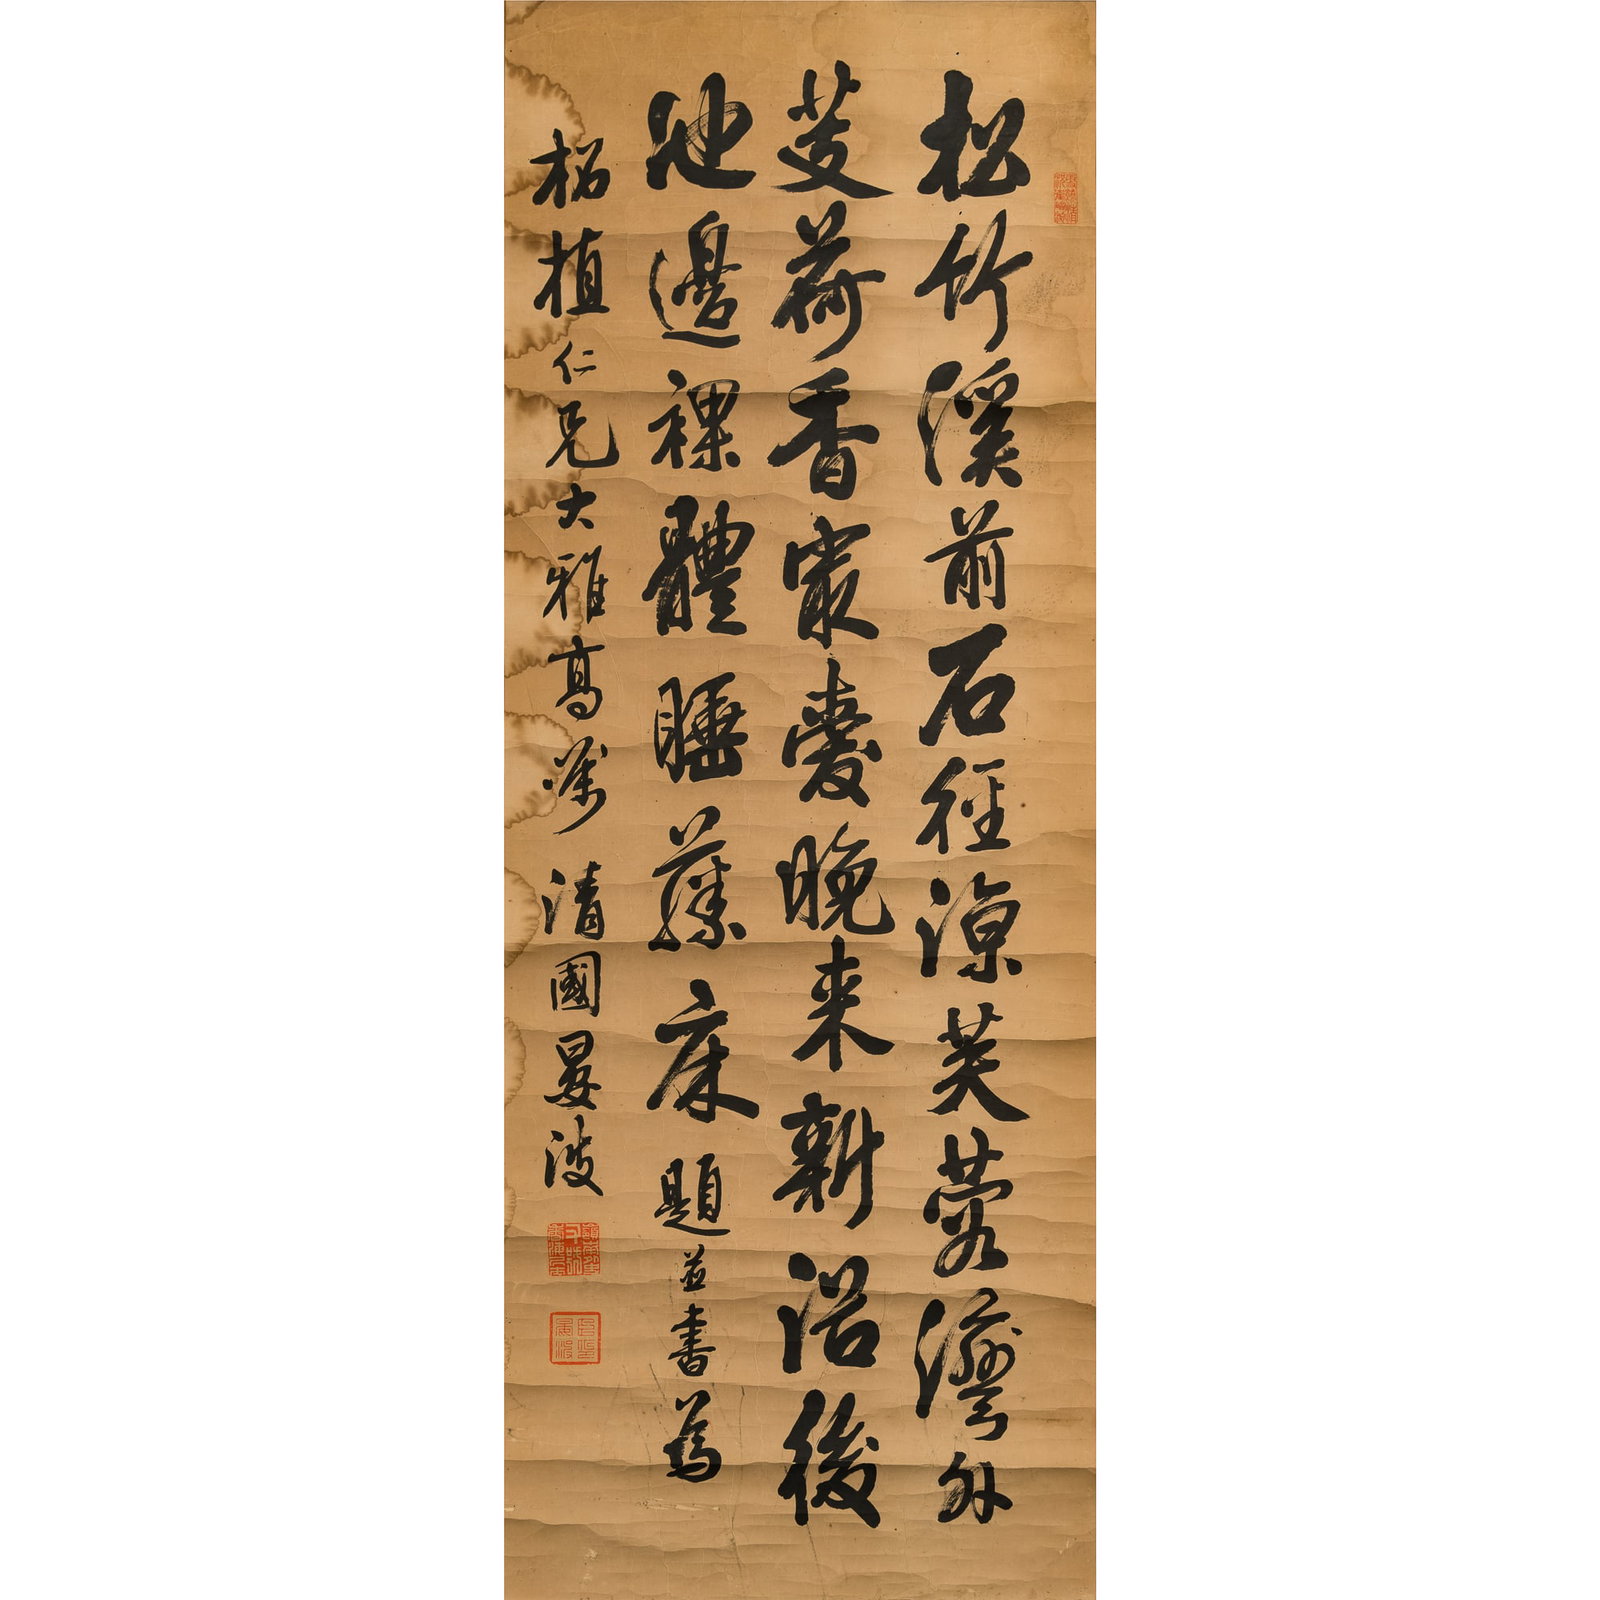 松竹溪前石徑涼芙蓉灣外
芰荷香最愛晚来新浴後
池邊裸體睡藤床題並書為
柘植仁兄大雅高囑清國晏波